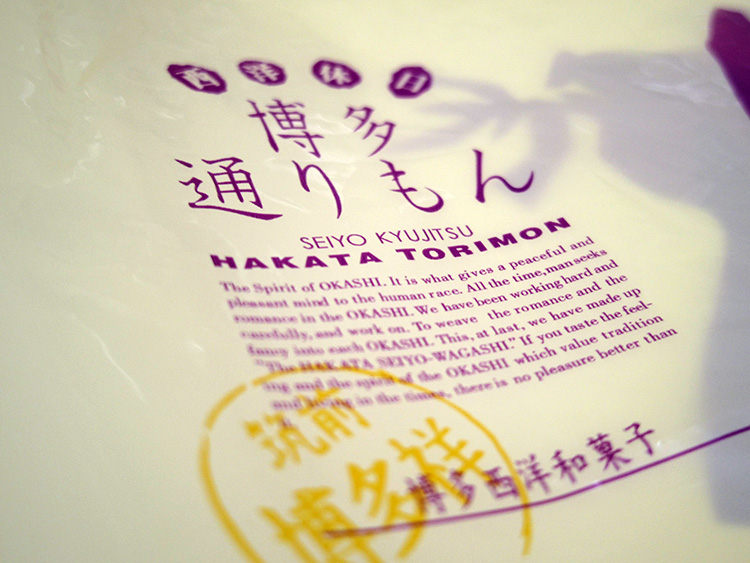 西洋休日
博多
通りもん
SEIYO KYUJITSU
HAKATA TORIMON
The Spirit of OKASHI. It is what gives a peaceful and
pleasant mind to the human race. All the time, man seeks
romance in the OKASHI. We have been working hard and
carefully, and work on. To weave the romance and the
fancy into each OKASHI. This, at last, we have made up
"The HAKATA SEIYO-WAGASHI." If you taste the feel-
ing and the spirit of the OKASHI which value tradition
and living in the times, there is no pleasure better than
博多西洋和菓子
筑前
博多祥